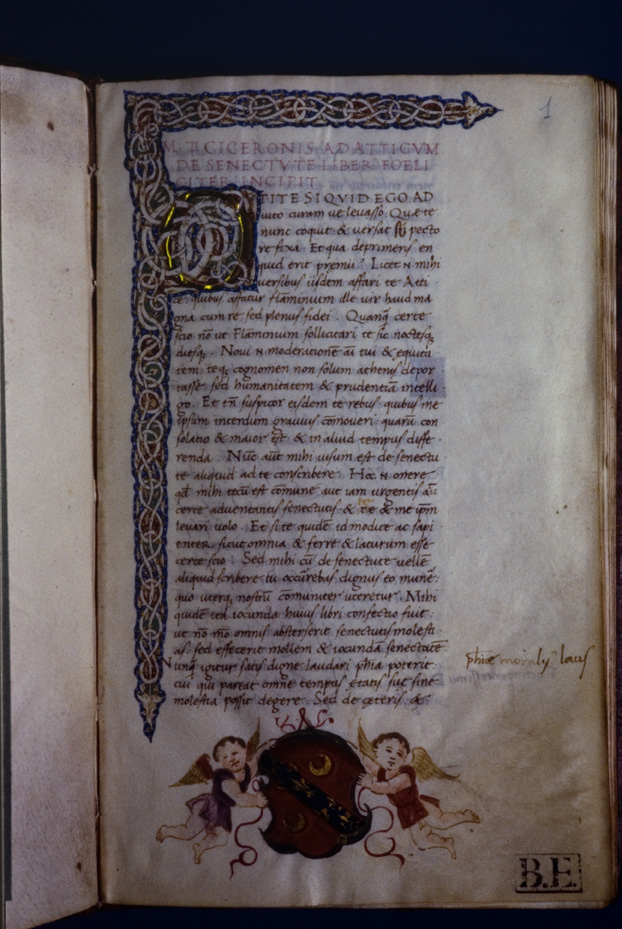 M. T. CICERONIS AD ATTICVM
DE SENECTVTE LIBER FOELI
CITER INCIPIT
O TITE SI QVID EGO AD
iuto curam ve levasso. Quae te
nunc coquit & versat sub pecto
re fixa. Et qua deprimeris en
quid erit premii? Licet n mihi
versibus iisdem affari te Atti
ce. quibus affatur flaminium ille vir haud ma
gna cum re sed plenus fidei. Quanq̃ certe
scio nõ ut Flaminium sollicitari te sic noctesq;
diesq;. Novi n moderationẽ ãi tui & equita
tem. teq; cognomen non solum athenis depor
tasse. sed humanitatem & prudentiã intelli
go. Et tñ suspicor eisdem te rebus quibus me
ipsum interdum gravius cõmoveri quarũ con
solatio & maior est & in aliud tempus diffe
renda. Nũc aũt mihi visum est de senectu
te aliquid ad te conscribere. Hoc n onere
qd mihi tecũ est cõmune aut iam urgentis aũ
certe adventantis senectutis & te & me ipm
levari volo. Et si te quidẽ id modice ac sapi
enter sicut omnia & ferre & laturum esse
certe scio. Sed mihi cũ de senectute vellẽ
aliquid scribere tu occurebas dignus eo mune:
quo uterq; nostrũ cõmuniter uteretur. Mihi
quidẽ ita iocunda huius libri confectio fuit.
ut nõ mõ omnis absterserit senectutis molesti
as. sed effecerit mollem & iocundã senectutẽ
Nunq̃ igitur satis digne laudari phia poterit.
cui qui pareat omne tempus etatis suae sine
molestia possit degere. Sed de ceteris &
1
phiae moralis laus
B.E.